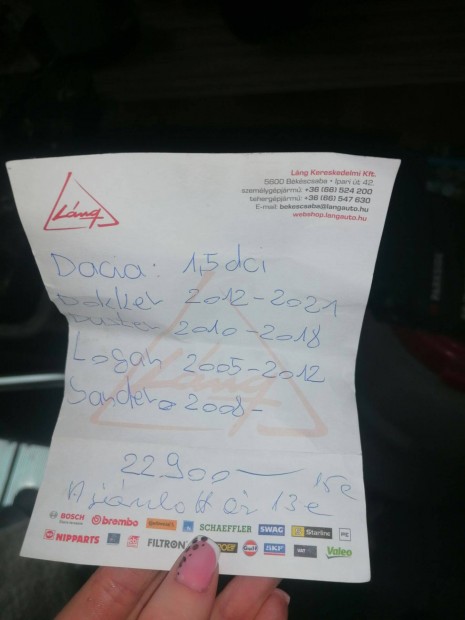 Láng Kereskedelmi Kft.
5600 Békéscsaba • Ipari út 42.
személygépjármű: +36 (66) 524 200
tehergépjármű: +36 (66) 547 630
E-mail: bekescsaba@langauto.hu
webshop.langauto.hu
Láng
Dacia: 1,5 dci
Dokker 2012-2021
Duster 2010-2018
Logan 2005-2012
Sandero 2008-
22.900
15e
Ajánlott ár 13e
BOSCH brembo Continental SCHAEFFLER SWAG Starline
NIPPARTS FILTRON Gulf SKF Valeo